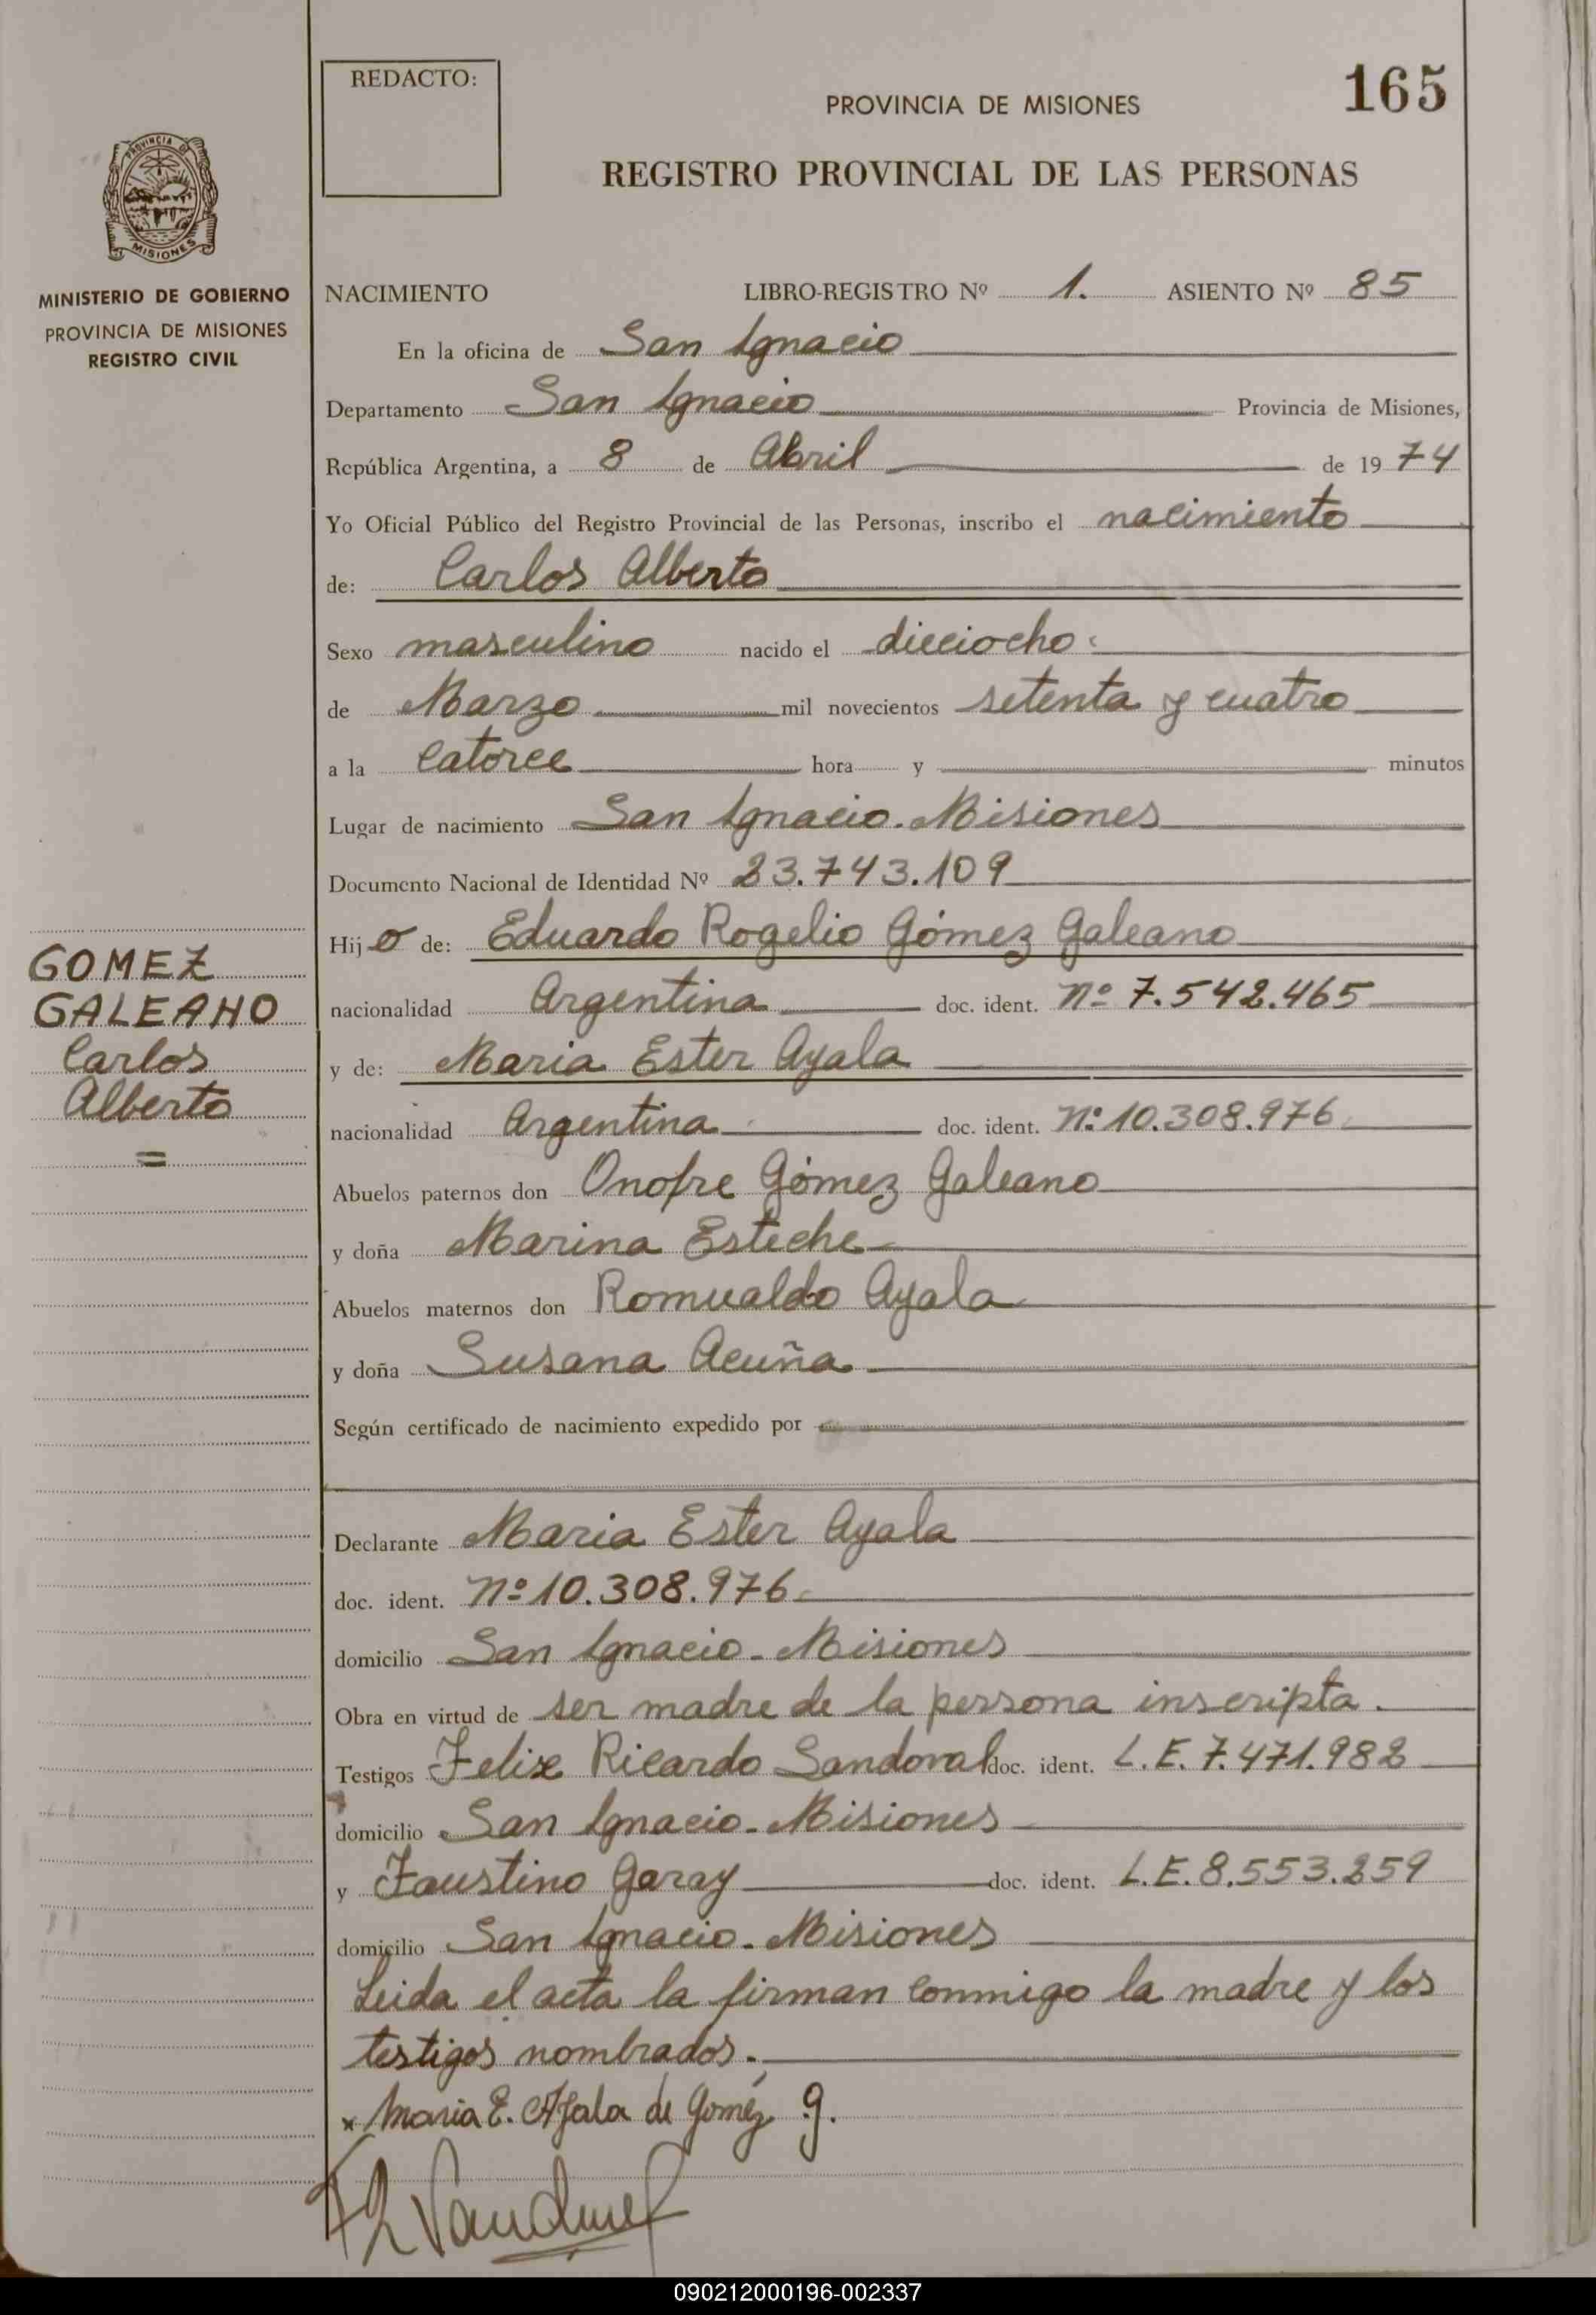 REDACTO:
165
PROVINCIA DE MISIONES
REGISTRO PROVINCIAL DE LAS PERSONAS
PROVINCIA DE
MISIONES
MINISTERIO DE GOBIERNO
PROVINCIA DE MISIONES
REGISTRO CIVIL
NACIMIENTO LIBRO-REGISTRO Nº 1. ASIENTO Nº 85
En la oficina de San Ignacio
Departamento San Ignacio Provincia de Misiones,
República Argentina, a 8 de Abril de 1974
Yo Oficial Público del Registro Provincial de las Personas, inscribo el nacimiento
de: Carlos Alberto
Sexo masculino nacido el dieciocho
de Marzo mil novecientos setenta y cuatro
a la catorce hora y minutos
Lugar de nacimiento San Ignacio. Misiones
Documento Nacional de Identidad Nº 23.743.109
Hijo de: Eduardo Rogelio Gómez Galeano
GOMEZ
GALEANO
Carlos
Alberto
=
nacionalidad Argentina doc. ident. Nº 7.542.465
y de: Maria Ester Ayala
nacionalidad Argentina doc. ident. Nº 10.308.976
Abuelos paternos don Onofre Gómez Galeano
y doña Marina Esteche
Abuelos maternos don Romualdo Ayala
y doña Susana Acuña
Según certificado de nacimiento expedido por
Declarante Maria Ester Ayala
doc. ident. Nº 10.308.976
domicilio San Ignacio - Misiones
Obra en virtud de ser madre de la persona inscripta.
Testigos Felix Ricardo Sandoval doc. ident. L.E. 7.471.982
domicilio San Ignacio - Misiones
y Faustino Garay doc. ident. L.E. 8.553.259
domicilio San Ignacio - Misiones
Leida el acta la firman conmigo la madre y los
testigos nombrados.
x Maria E. Ayala de Goméz g.
F R Sandoval
090212000196-002337